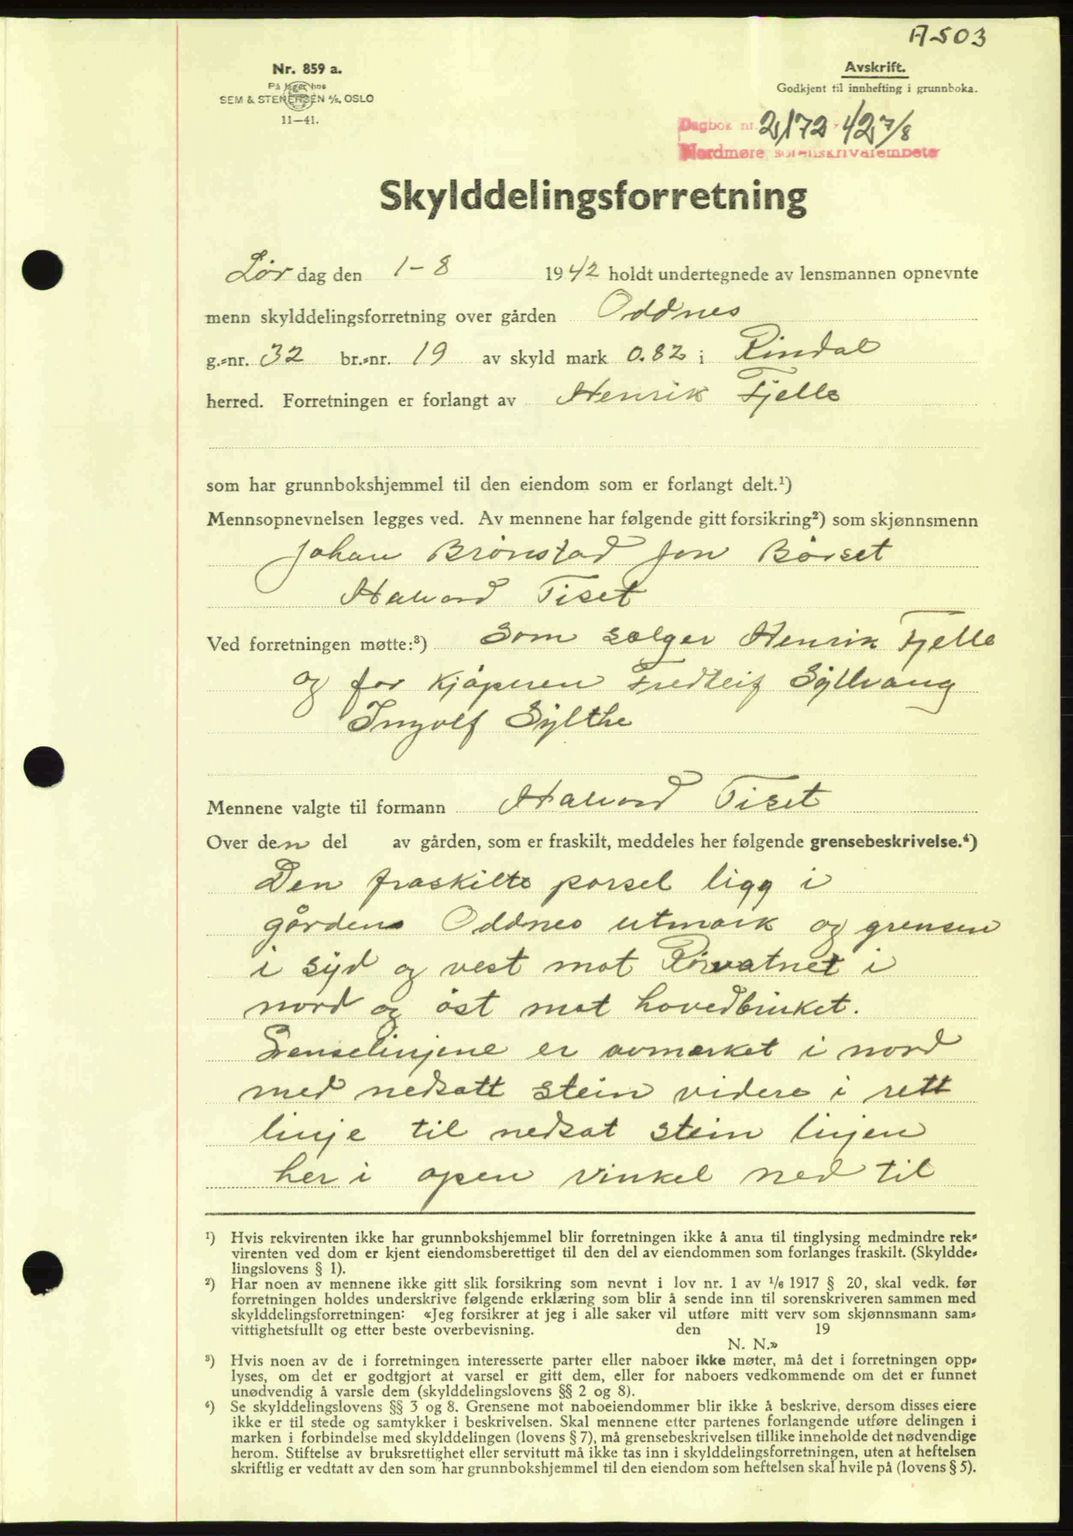 A503
Nr. 859 a.
På lager hos
SEM & STENERSEN A/S, OSLO
11—41.
Avskrift.
Godkjent til innhefting i grunnboka.
Dagbok nr. 2172 - 42 7/8
Nordmøre sorenskriverembete
Skylddelingsforretning
Lør dag den 1-8 1942 holdt undertegnede av lensmannen opnevnte
menn skylddelingsforretning over gården Oddnes
g.-nr. 32 br.-nr. 19 av skyld mark 0.82 i Rindal
herred. Forretningen er forlangt av Henrik Fjelle
som har grunnbokshjemmel til den eiendom som er forlangt delt.¹)
Mennsopnevnelsen legges ved. Av mennene har følgende gitt forsikring²) som skjønnsmenn
Johan Brönstad Jon Börset
Halvord Tiset
Ved forretningen møtte:³) Som sælger Henrik Fjelle
og for kjöperen Fredleif Syllvang
Ingolf Sylthe
Mennene valgte til formann Halvord Tiset
Over den del av gården, som er fraskilt, meddeles her følgende grensebeskrivelse.⁴)
Den fraskilte parsel ligg i
gårdens Oddnes utmark og grensen
i syd og vest mot Rörvatnet i
nord og öst mot hovedbruket.
Grenselinjene er avmerket i nord
med nedsatt stein videre i rett
linje til nedsat stein linjen
her i open vinkel ned til
¹) Hvis rekvirenten ikke har grunnbokshjemmel blir forretningen ikke å anta til tinglysing medmindre rek-
virenten ved dom er kjent eiendomsberettiget til den del av eiendommen som forlanges fraskilt. (Skyldde-
lingslovens § 1).
²) Har noen av mennene ikke gitt slik forsikring som nevnt i lov nr. 1 av 1/6 1917 § 20, skal vedk. før
forretningen holdes underskrive følgende erklæring som blir å sende inn til sorenskriveren sammen med
skylddelingsforretningen: «Jeg forsikrer at jeg i alle saker vil utføre mitt verv som skjønnsmann sam-
vittighetsfullt og etter beste overbevisning. den 19
N. N.»
³) Hvis noen av de i forretningen interesserte parter eller naboer ikke møter, må det i forretningen opp-
lyses, om det er godtgjort at varsel er gitt dem, eller for naboers vedkommende om det er funnet
unødvendig å varsle dem (skylddelingslovens §§ 2 og 8).
⁴) Se skylddelingslovens §§ 3 og 8. Grensene mot naboeiendommer blir ikke å beskrive, dersom disses eiere
ikke er til stede og samtykker i beskrivelsen. Skal mennene etter partenes forlangende utføre delingen i
marken i forbindelse med skylddelingen (lovens § 7), må grensebeskrivelsen tillike inneholde det nødvendige
herom. Stiftelse av bruksrettighet eller servitutt må ikke tas inn i skylddelingsforretningen, uten at heftelsen
skriftlig er vedtatt av den som har grunnbokshjemmel til den eiendom som heftelsen skal hvile på (lovens § 5).